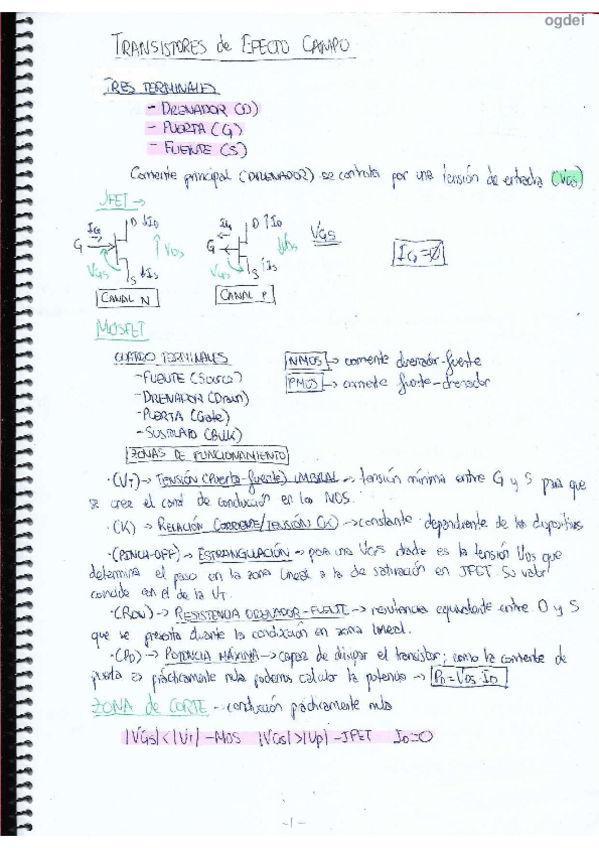 ogdei
TRANSISTORES de EFECTO CAMPO
TRES TERMINALES
- DRENADOR (D)
- PUERTA (G)
- FUENTE (S)
Corriente principal (DRENADOR) se controla por una tensión de entrada (VGS)
JFET →
IG D ↓ID G VGS VDS S ↓IS
IG D ↑ID G VGS VDS S ↑IS
VGS
IG=0
CANAL N
CANAL P
MOSFET
CUATRO TERMINALES
- FUENTE (Source)
- DRENADOR (Drain)
- PUERTA (Gate)
- SUSTRATO (Bulk)
NMOS → corriente drenador-fuente
PMOS → corriente fuente-drenador
ZONAS DE FUNCIONAMIENTO
·(VT) → TENSIÓN (Puerta-fuente) UMBRAL → tensión mínima entre G y S para que
se cree el canal de conducción en los MOS.
·(K) → RELACIÓN CORRIENTE/TENSIÓN (K) → constante dependiente de los dispositivos
·(PINCH-OFF) → ESTRANGULACIÓN → para una VGS dada es la tensión VDS que
determina el paso en la zona lineal a la de saturación en JFET. Su valor
coincide con el de la VT.
·(RON) → RESISTENCIA DRENADOR-FUENTE → resistencia equivalente entre D y S
que se presenta durante la conducción en zona lineal.
·(PD) → POTENCIA MÁXIMA → capaz de disipar el transistor; como la corriente de
puerta es prácticamente nula podemos calcular la potencia → PD=VDS·ID
ZONA de CORTE - conducción prácticamente nula
|VGS|<|VT| -MOS |VGS|>|Vp| -JFET ID=0
-1-